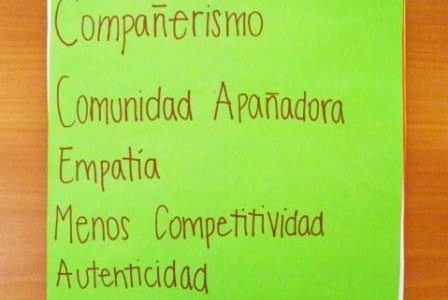 Compañerismo
Comunidad Apañadora
Empatía
Menos Competitividad
Autenticidad